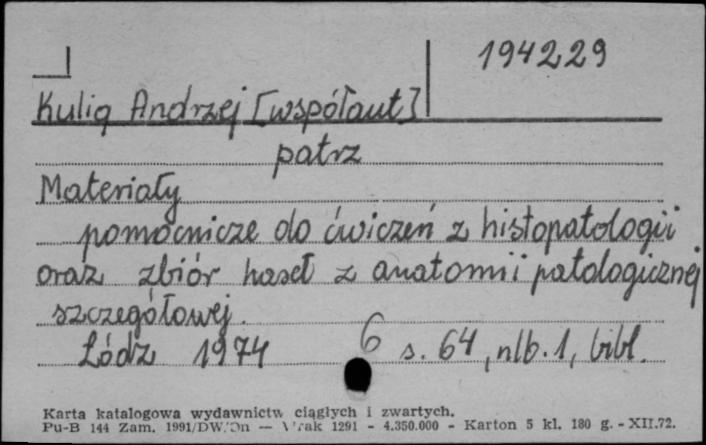 194229
Kulig Andrzej [współaut]
patrz
Materiały
pomocnicze do ćwiczeń z histopatologii
oraz zbiór haseł z anatomii patologicznej
szczegółowej.
Łódź 1974 6 s. 64, nlb. 1, bibl.
Karta katalogowa wydawnictw ciągłych i zwartych.
Pu-B 144 Zam. 1991/DW. — 1291 - 4.350.000 - Karton 5 kl. 180 g. - XII.72.